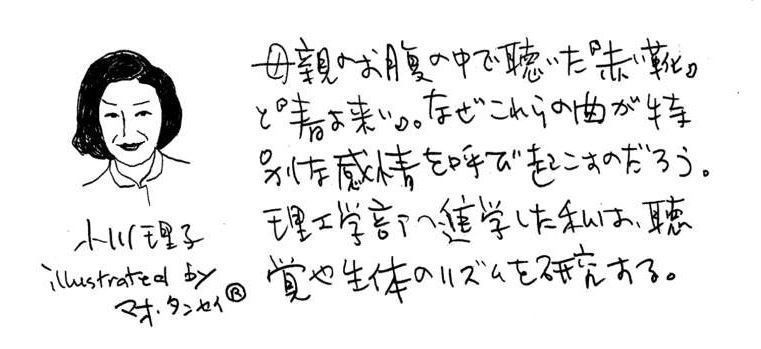 母親のお腹の中で聴いた『赤い靴』
と『春よ来い』。なぜこれらの曲が特
別な感情を呼び起こすのだろう。
理工学部へ進学した私は、聴
覚や生体のリズムを研究する。
小川理子
illustrated by
マオ・タンセイ®